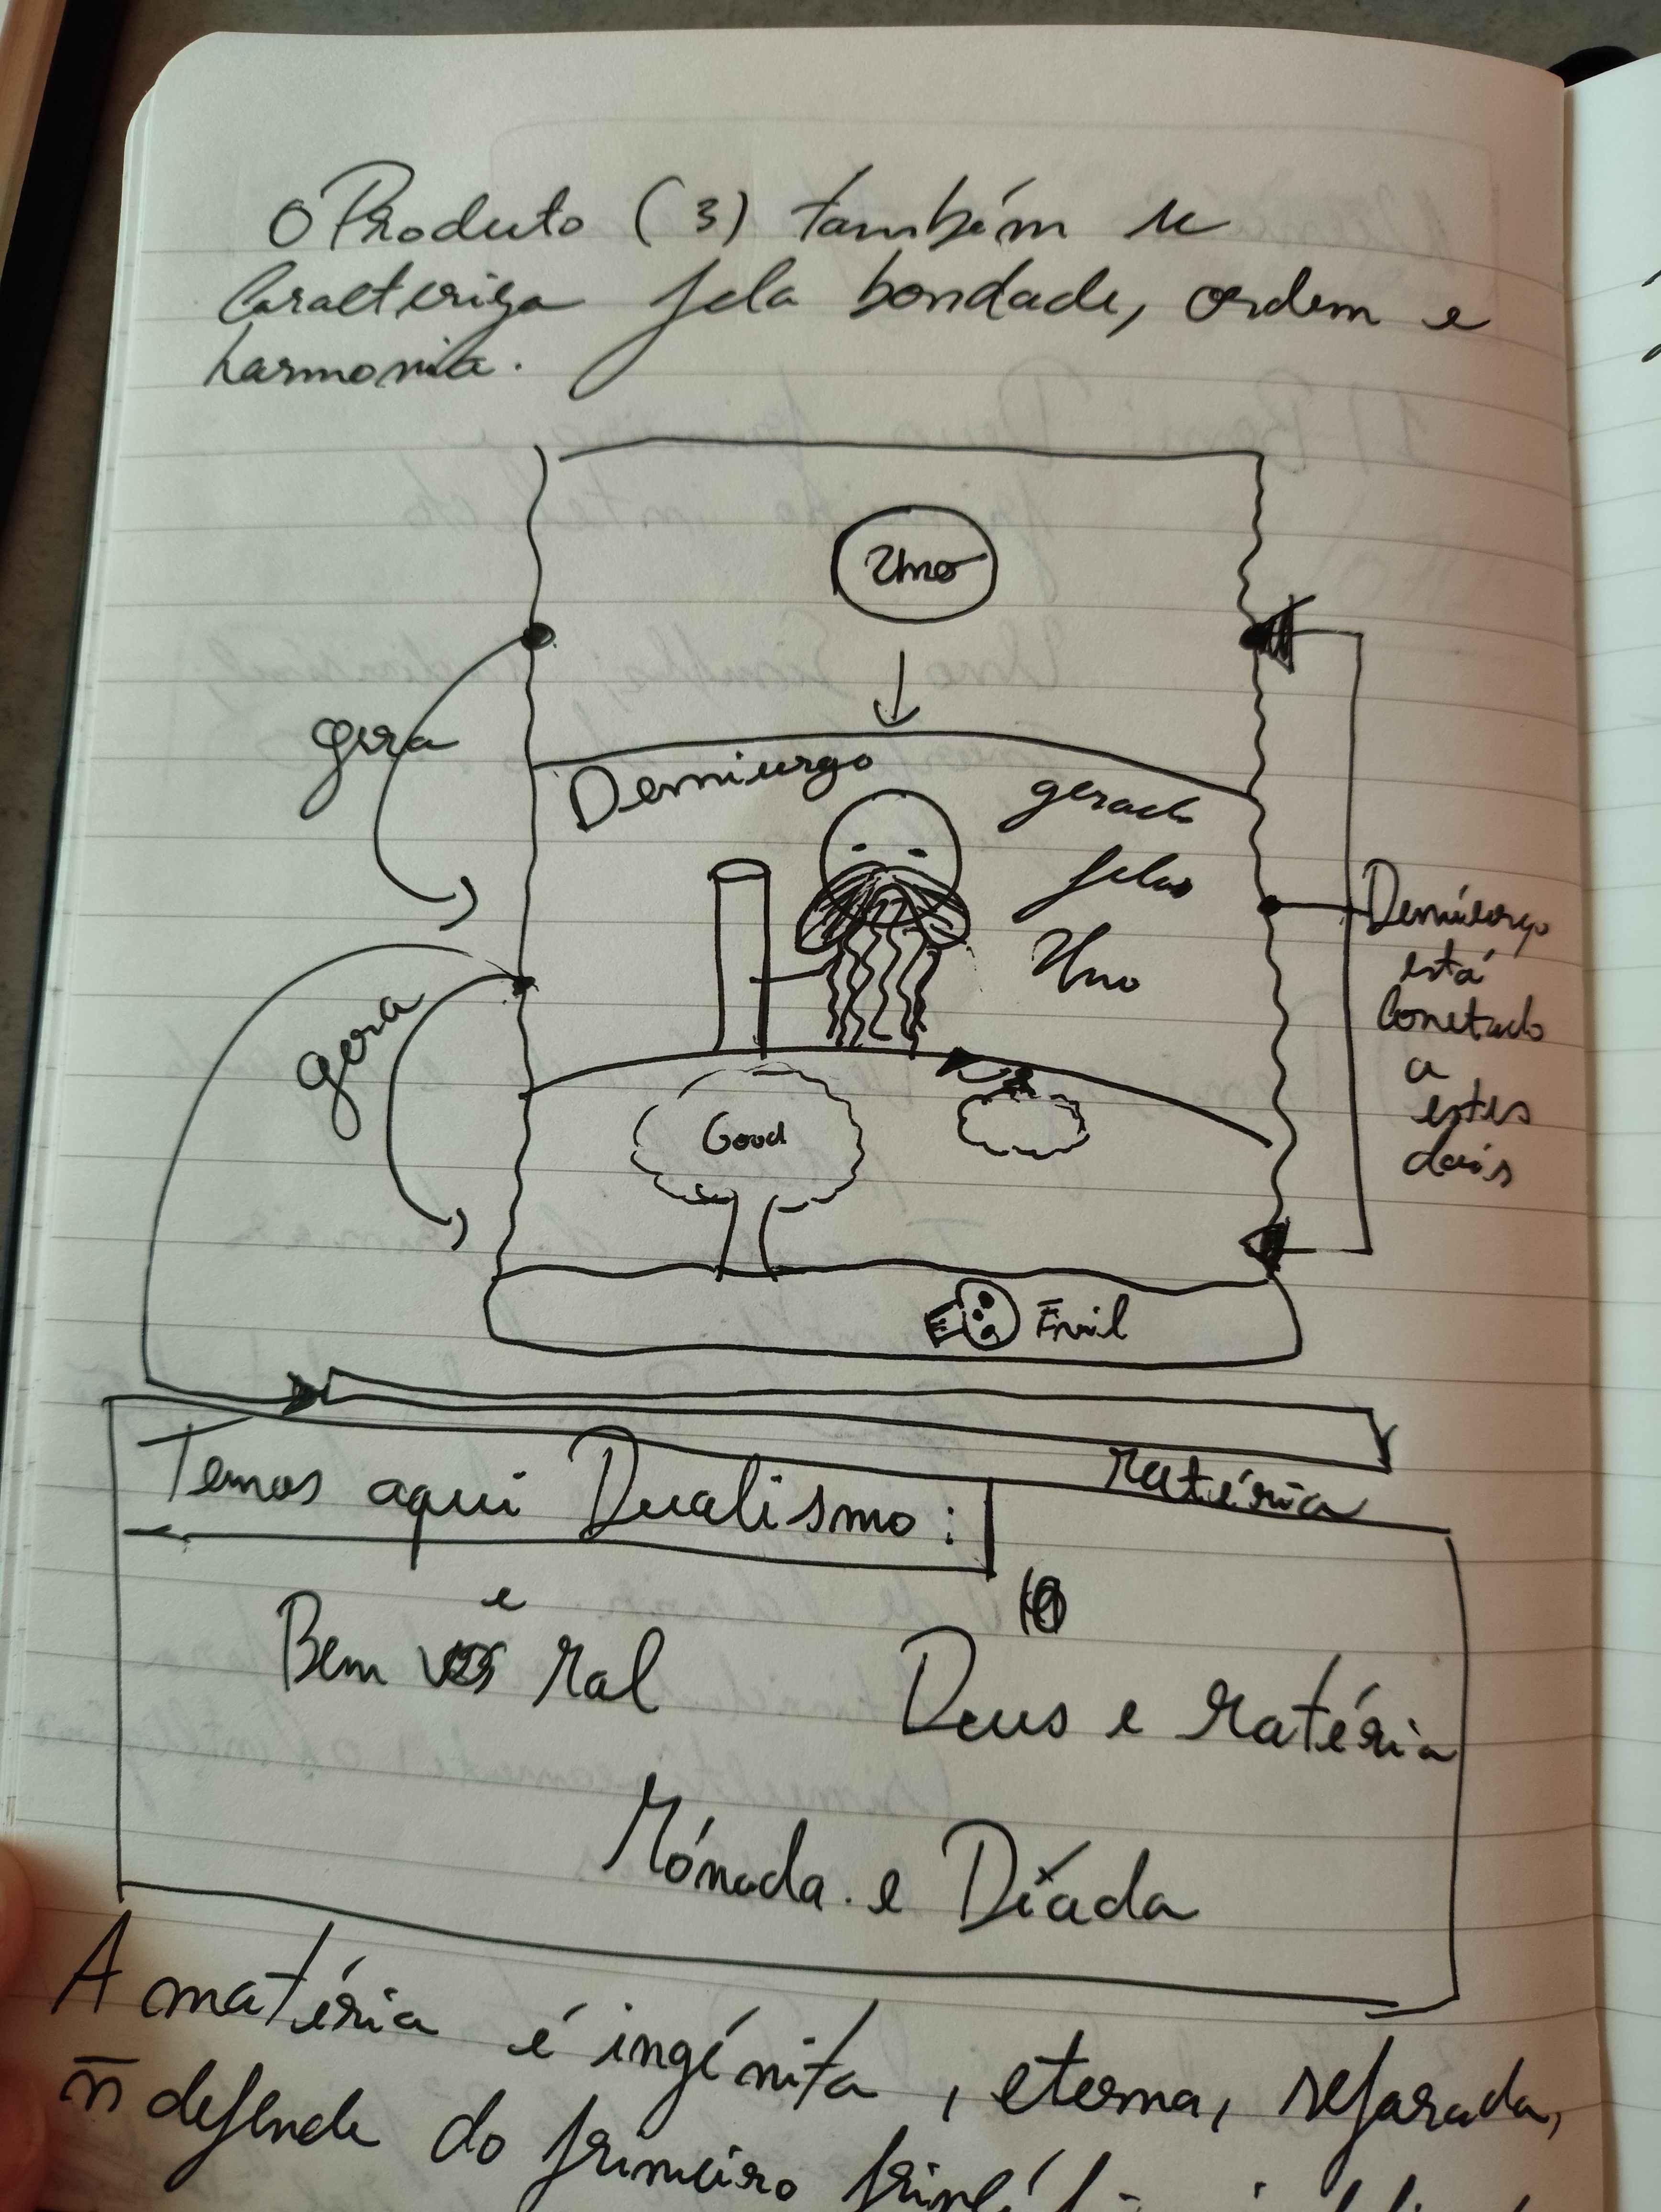 O Produto (3) também se
Caracteriza pela bondade, ordem e
harmonia.
Uno
gera
Demiurgo
gerado
pelo
Uno
gera
Demiurgo
está
Conetado
a
estes
dois
Good
Evil
Matéria
Temos aqui Dualismo:
Bem e Mal
Deus e Matéria
Mónada e Díada
A matéria é ingénita, eterna, separada,
n̄ depende do primeiro